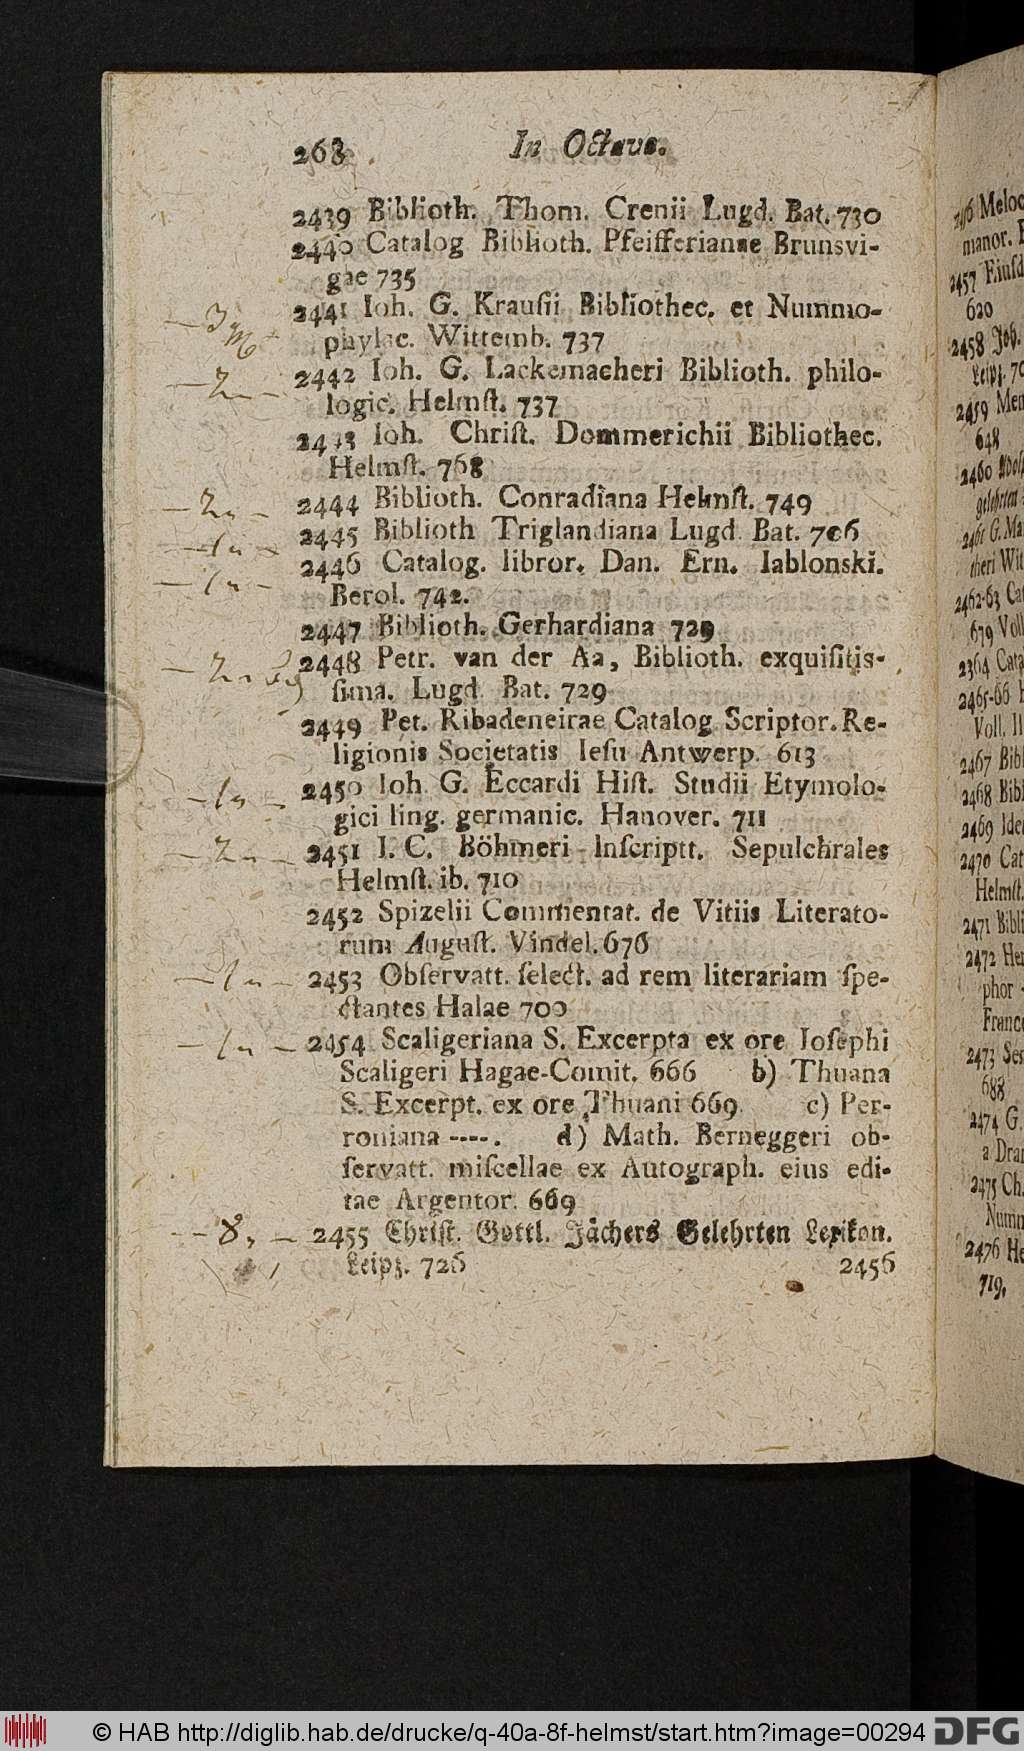 268 In Octavo.
2439 Biblioth. Thom. Crenii Lugd. Bat. 730
2440 Catalog Biblioth. Pfeifferianae Brunsvi-
gae 735
2441 Ioh. G. Krausii Bibliothec. et Nummo-
phylac. Wittemb. 737
2442 Ioh. G. Lackemacheri Biblioth. philo-
logic. Helmſt. 737
2443 Ioh. Chriſt. Dommerichii Bibliothec.
Helmſt. 768
2444 Biblioth. Conradiana Helmſt. 749
2445 Biblioth Triglandiana Lugd. Bat. 706
2446 Catalog. libror. Dan. Ern. Iablonski.
Berol. 742.
2447 Biblioth. Gerhardiana 729
2448 Petr. van der Aa, Biblioth. exquiſitis-
ſima. Lugd. Bat. 729
2449 Pet. Ribadeneirae Catalog Scriptor. Re-
ligionis Societatis Ieſu Antwerp. 613
2450 Ioh G. Eccardi Hiſt. Studii Etymolo-
gici ling. germanic. Hanover. 711
2451 I. C. Böhmeri Inſcriptt. Sepulchrales
Helmſt. ib. 710
2452 Spizelii Commentat. de Vitiis Literato-
rum Auguſt. Vindel. 676
2453 Obſervatt. ſelect. ad rem literariam ſpe-
ctantes Halae 700
2454 Scaligeriana S. Excerpta ex ore Ioſephi
Scaligeri Hagae-Comit. 666 b) Thuana
S. Excerpt. ex ore Thuani 669. c) Per-
roniana ----. d) Math. Berneggeri ob-
ſervatt. miſcellae ex Autograph. eius edi-
tae Argentor. 669
2455 Chriſt. Gottl. Jöchers Gelehrten Lexikon.
Leipz. 726 2456
2457 Eiusd
620
2458 Joh.
Leipz.
2459
648
2460
gelehrten
2461 G. Ma
2462-63 Ca
679 Voll
2364 Cata
2465-66
Voll. II
2467 Bibl
2468 Bibl
2469 Ide
2470 Cat
Helmſt.
2471 Bibli
2472 Her
phor
Franco
2473 Se
688
2474 G.
a Dra
2475 Ch.
Numm
2476 He
719.
© HAB http://diglib.hab.de/drucke/q-40a-8f-helmst/start.htm?image=00294 DFG